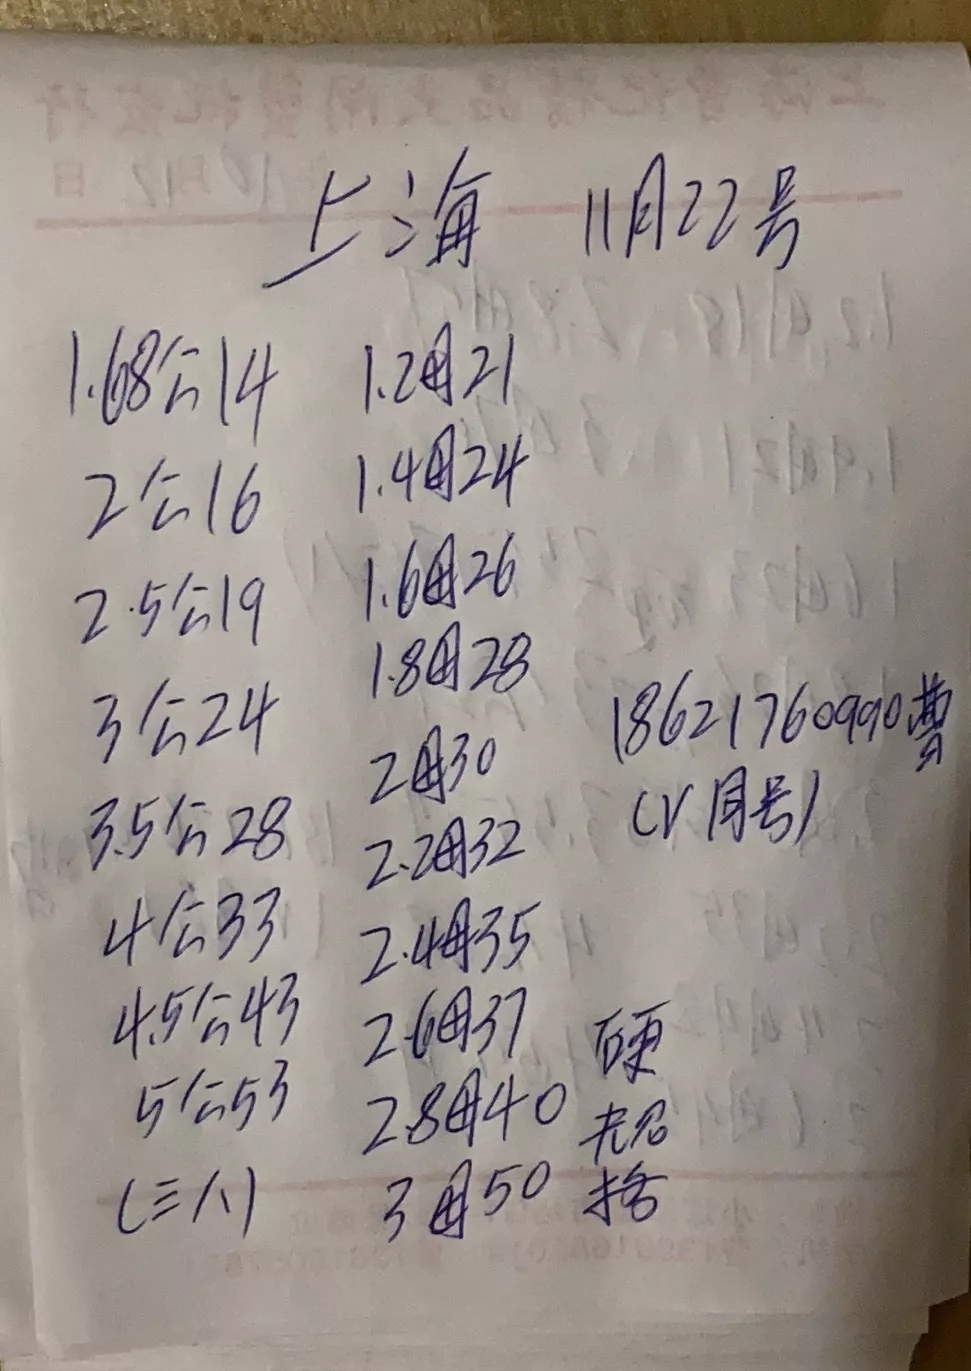 上海 11月22号
1.68公14 1.2母21
2公16 1.4母24
2.5公19 1.6母26
3公24 1.8母28
3.5公28 2母30
4公33 2.2母32
4.5公43 2.4母35
5公53 2.6母37
(三八) 2.8母40
3母50
18621760990曹
(V同号)
硬
壳